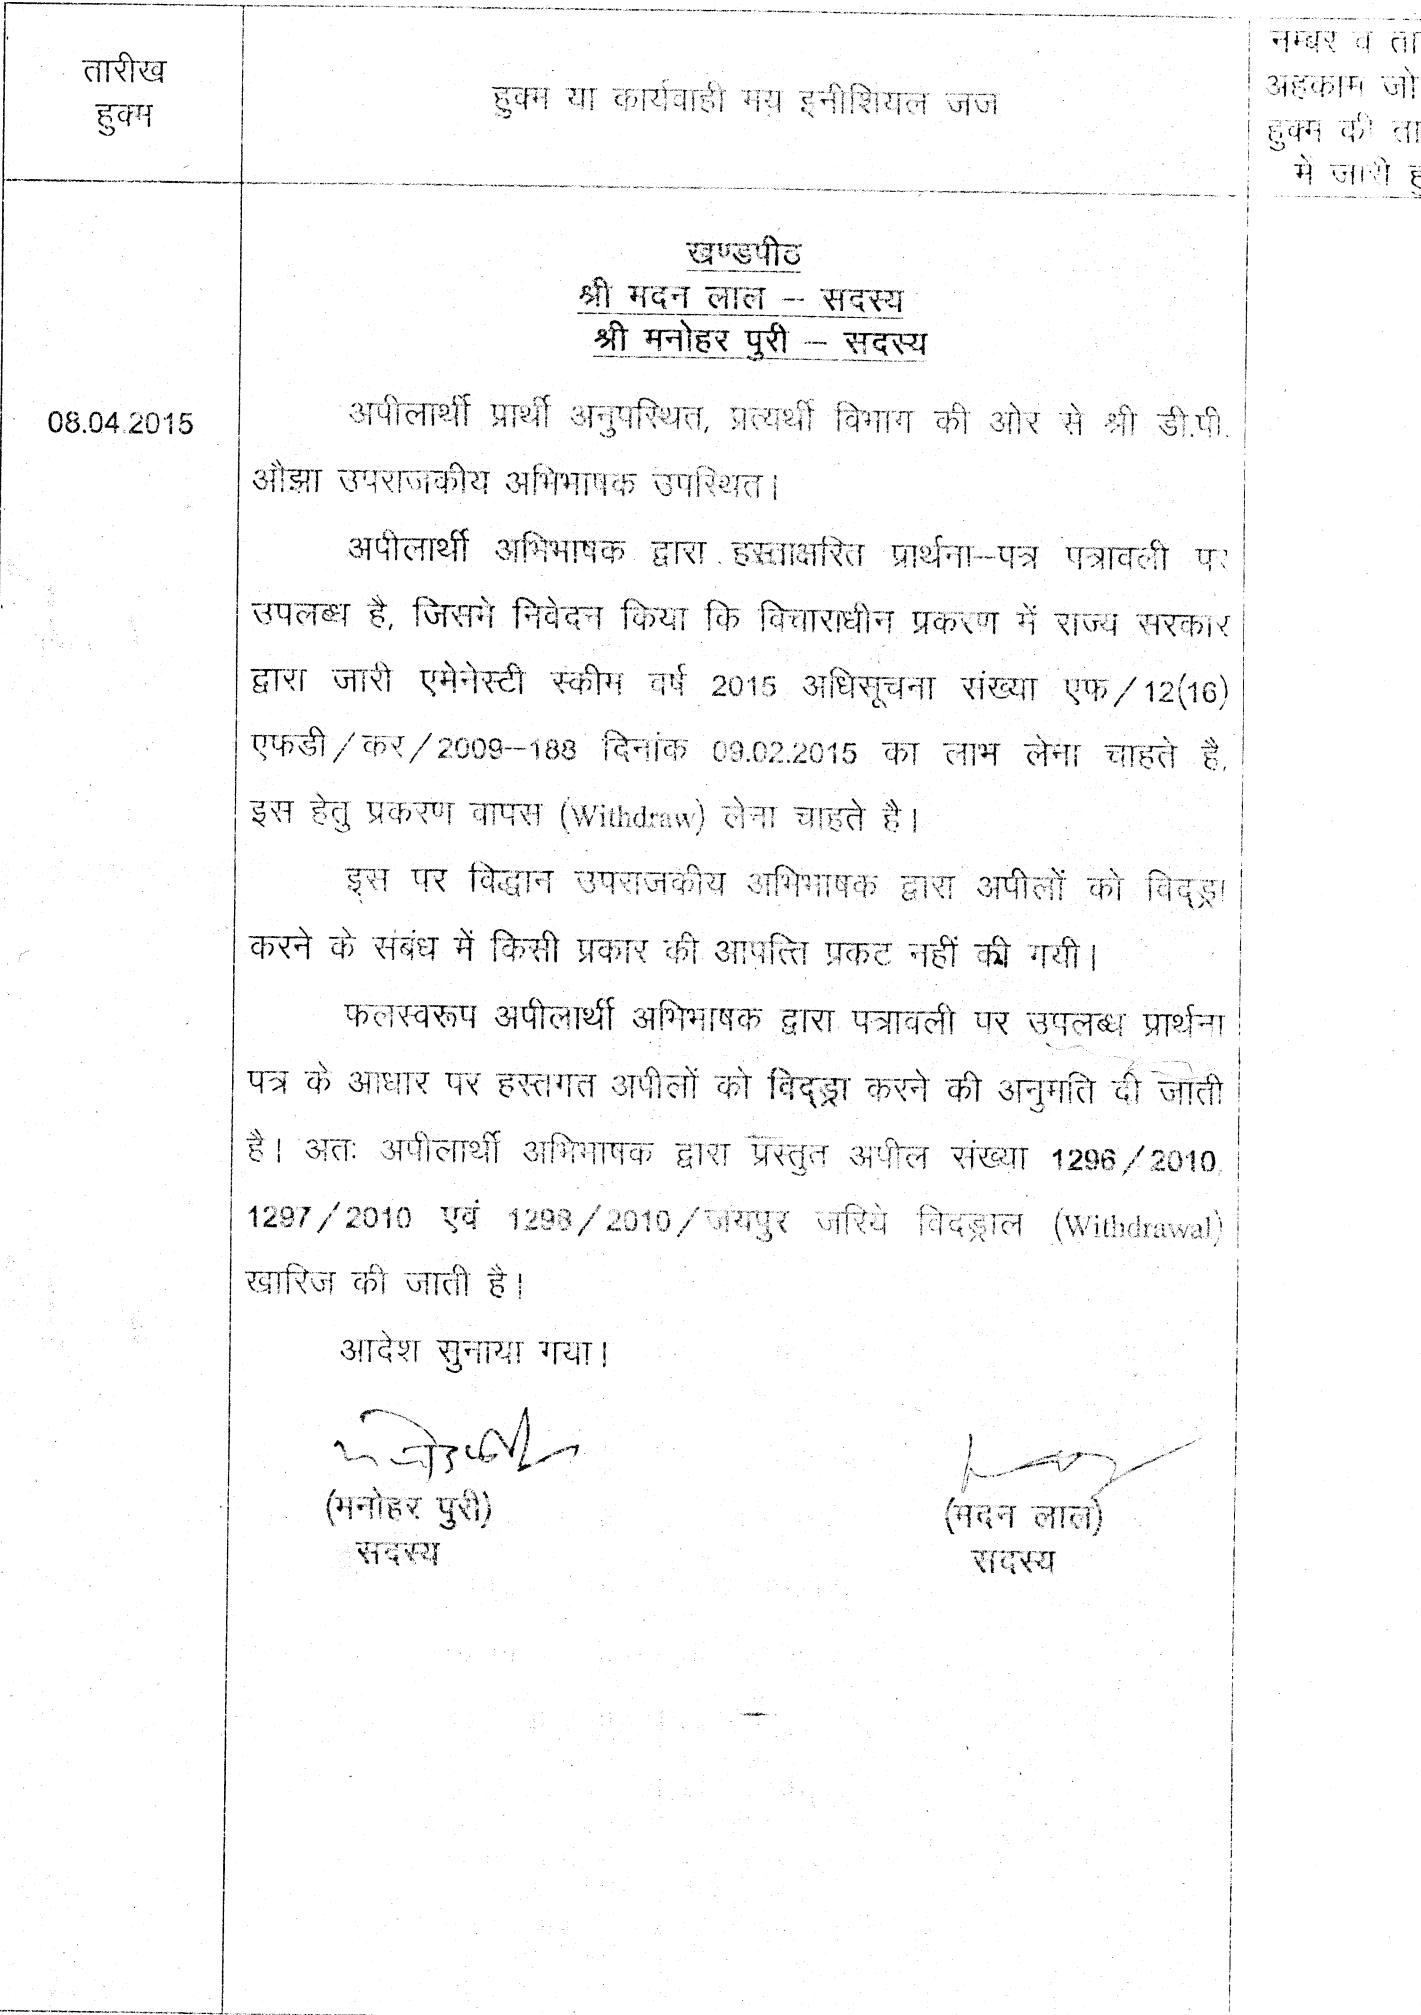 तारीख
हुक्म
हुक्म या कार्यवाही मय इनीशियल जज
नम्बर व ता
अहकाम जो
हुक्म की ता
में जारी हु
खण्डपीठ
श्री मदन लाल – सदस्य
श्री मनोहर पुरी – सदस्य
08.04.2015
अपीलार्थी प्रार्थी अनुपस्थित, प्रत्यर्थी विभाग की ओर से श्री डी.पी.
औझा उपराजकीय अभिभाषक उपस्थित।
अपीलार्थी अभिभाषक द्वारा हस्ताक्षरित प्रार्थना–पत्र पत्रावली पर
उपलब्ध है, जिसमे निवेदन किया कि विचाराधीन प्रकरण में राज्य सरकार
द्वारा जारी एमेनेस्टी स्कीम वर्ष 2015 अधिसूचना संख्या एफ/12(16)
एफडी/कर/2009–188 दिनांक 09.02.2015 का लाभ लेना चाहते है,
इस हेतु प्रकरण वापस (Withdraw) लेना चाहते है।
इस पर विद्धान उपराजकीय अभिभाषक द्वारा अपीलों को विद्ड्रा
करने के संबंध में किसी प्रकार की आपत्ति प्रकट नहीं की गयी।
फलस्वरूप अपीलार्थी अभिभाषक द्वारा पत्रावली पर उपलब्ध प्रार्थना
पत्र के आधार पर हस्तगत अपीलों को विद्ड्रा करने की अनुमति दी जाती
है। अतः अपीलार्थी अभिभाषक द्वारा प्रस्तुत अपील संख्या 1296/2010,
1297/2010 एवं 1298/2010/जयपुर जरिये विदड्राल (Withdrawal)
खारिज की जाती है।
आदेश सुनाया गया।
(मनोहर पुरी)
सदस्य
(मदन लाल)
सदस्य